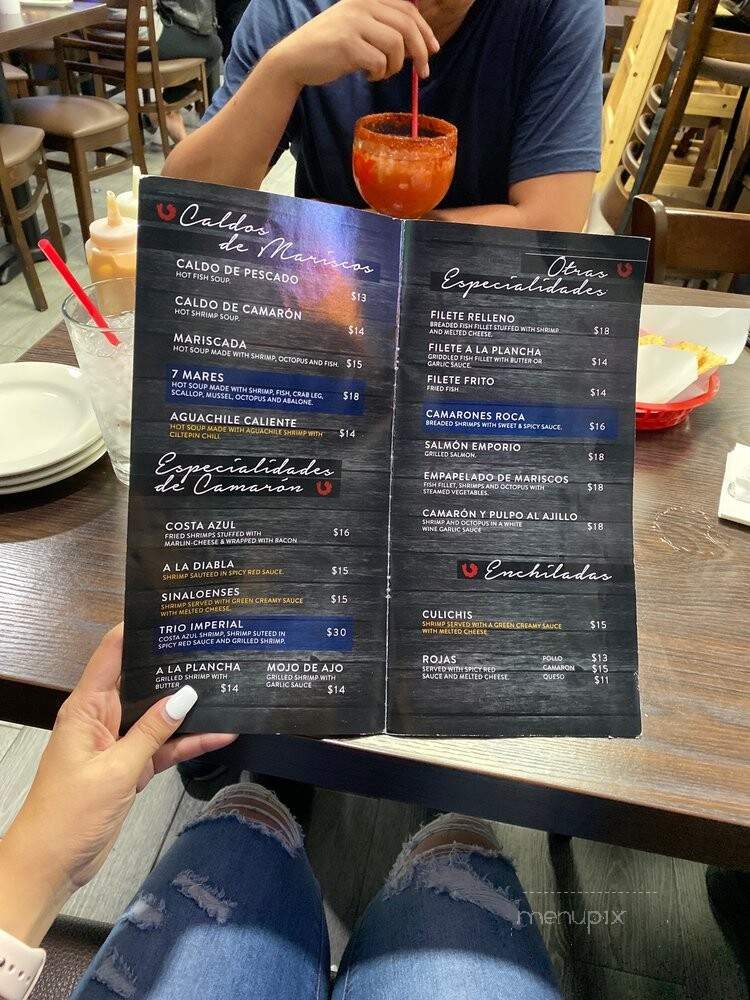 Caldos
de Mariscos
CALDO DE PESCADO
HOT FISH SOUP.
$13
CALDO DE CAMARÓN
HOT SHRIMP SOUP.
$14
MARISCADA
HOT SOUP MADE WITH SHRIMP, OCTOPUS AND FISH. $15
7 MARES
HOT SOUP MADE WITH SHRIMP, FISH, CRAB LEG,
SCALLOP, MUSSEL, OCTOPUS AND ABALONE. $18
AGUACHILE CALIENTE
HOT SOUP MADE WITH AGUACHILE SHRIMP WITH
CILTEPIN CHILI. $14
Especialidades
de Camarón
COSTA AZUL
FRIED SHRIMPS STUFFED WITH
MARLIN-CHEESE & WRAPPED WITH BACON $16
A LA DIABLA
SHRIMP SAUTEED IN SPICY RED SAUCE. $15
SINALOENSES
SHRIMP SERVED WITH GREEN CREAMY SAUCE
WITH MELTED CHEESE. $15
TRIO IMPERIAL
COSTA AZUL SHRIMP, SHRIMP SUTEED IN
SPICY RED SAUCE AND GRILLED SHRIMP. $30
A LA PLANCHA
GRILLED SHRIMP WITH
BUTTER $14
MOJO DE AJO
GRILLED SHRIMP WITH
GARLIC SAUCE $14
Otras
Especialidades
FILETE RELLENO
BREADED FISH FILLET STUFFED WITH SHRIMP
AND MELTED CHEESE. $18
FILETE A LA PLANCHA
GRIDDLED FISH FILLET WITH BUTTER OR
GARLIC SAUCE. $14
FILETE FRITO
FRIED FISH. $14
CAMARONES ROCA
BREADED SHRIMPS WITH SWEET & SPICY SAUCE. $16
SALMÓN EMPORIO
GRILLED SALMON. $18
EMPAPELADO DE MARISCOS
FISH FILLET, SHRIMPS AND OCTOPUS WITH
STEAMED VEGETABLES. $18
CAMARÓN Y PULPO AL AJILLO
SHRIMP AND OCTOPUS IN A WHITE
WINE GARLIC SAUCE $18
Enchiladas
CULICHIS
SHRIMP SERVED WITH A GREEN CREAMY SAUCE
WITH MELTED CHEESE $15
ROJAS
SERVED WITH SPICY RED
SAUCE AND MELTED CHEESE.
POLLO $13
CAMARON $15
QUESO $11
menupix